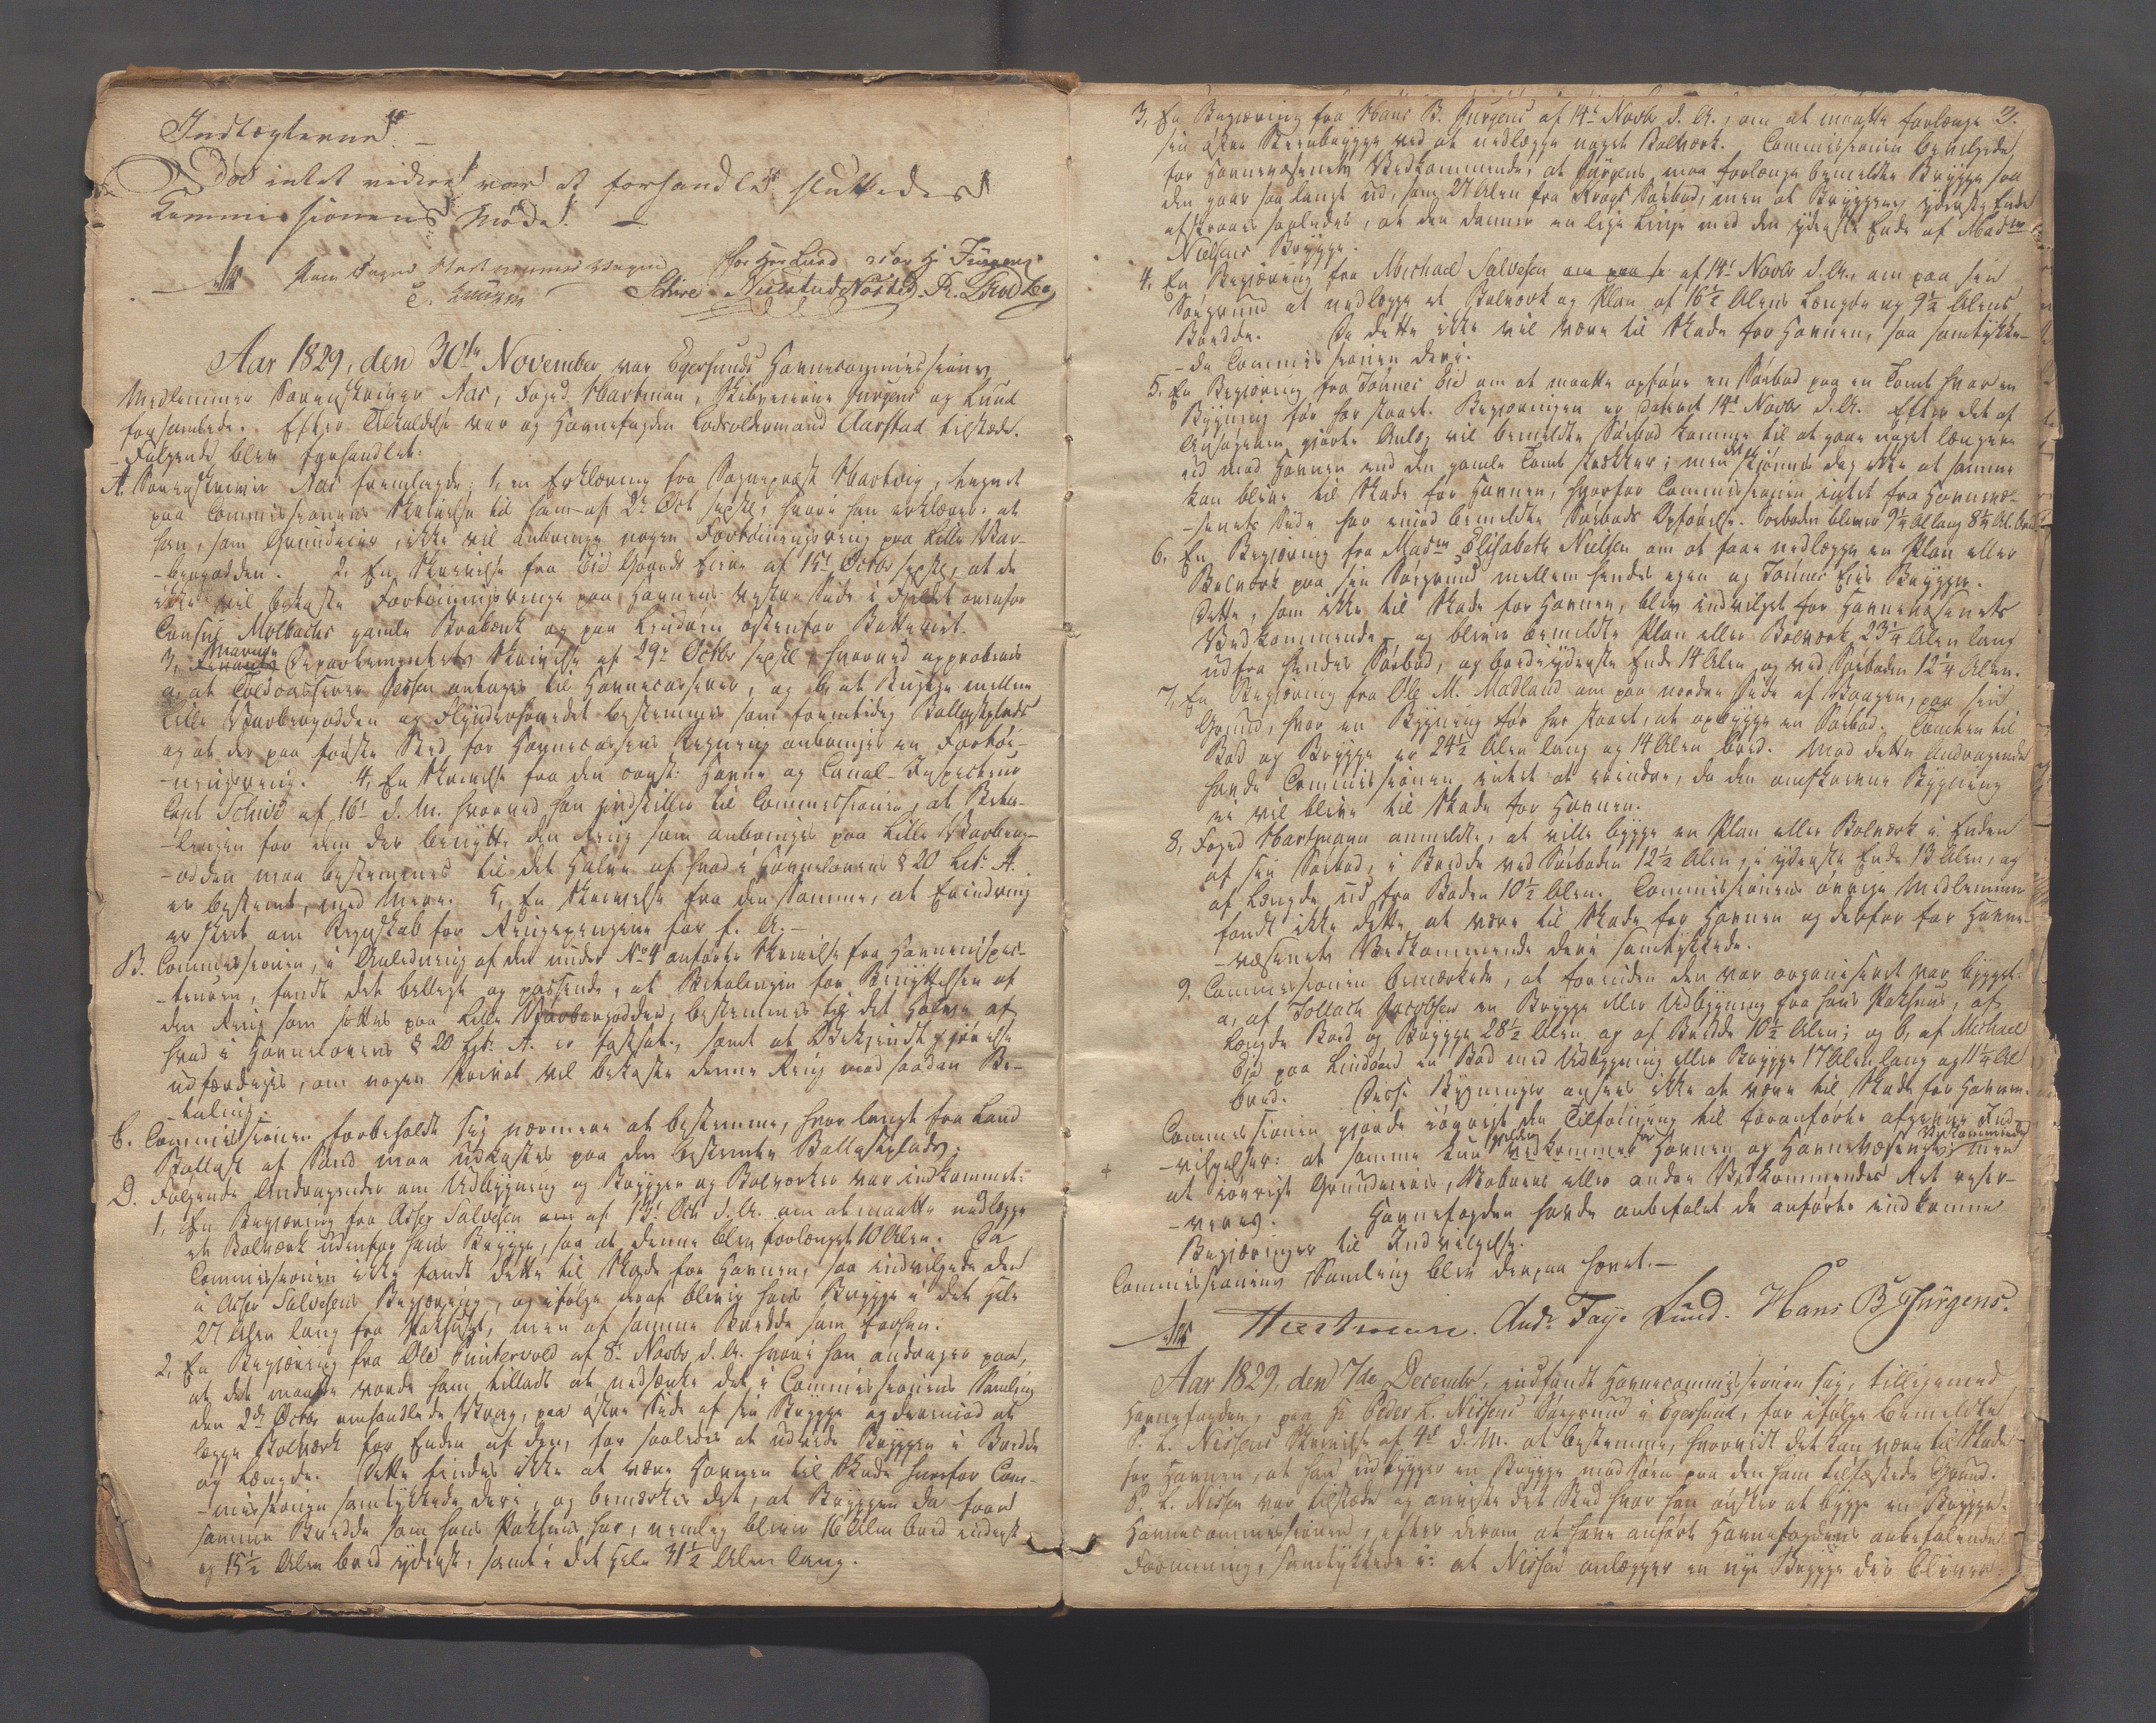 Indtægterne. –
Da intet videre var at forhandle sluttedes
Commissionens Møde. –
Aas
Schive
Aar 1829, den 30te November var Egersunds Havnecommissions
Medlemmer Sorenskriver Aas, Foged Hartman, Skibsreierne Jürgens og Lund
forsamlede. Efter Tilkaldelse var og Havnefogden Lodsoldermand Aarstad tilstæde.
Følgende blev forhandlet:
A. Sorenskriver Aas fremlagde: 1, en Erklæring fra Sogneprest Hartvig, tegnet
paa Commissionens Skrivelse til ham af 2d Oct sidstl, hvori han erklærer at
han, som Grundeier, ikke vil anbringe nogen Fortøiningsring paa Lille Var-
-bergodden. 2, En Skrivelse fra Eid Gaards Eiere af 15d Octbr sidstl, at de
ikke vil bekoste Fortøiningsringe paa Havnens vestre Side i Fjeldet ovenfor
Consul Mølbachs gamle Brabænk og paa Lindøen østenfor Batteriet.
3, Marine Departementets Skrivelse af 29d Octbr sidstl, hvorved approberes
a, at Toldcasserer Jessen antages til Havnecasserer, og b, at Bugten mellem
Lille Varbergodden og Flynderhovedet bestemmes som fremtidig Ballastplads
og at der paa første Sted for Havnecassens Regning anbringes en Fortøi-
-ningsring. 4, En Skrivelse fra den const: Havne og Canal-Inspecteur
Capt Schive af 16d d. M. hvorved han indstiller til Commissionen, at Beta-
-lingen for dem der benytte den Ring som anbringes paa Lille Varberg-
-odden maa bestemmes til det Halve af hvad i Havnelovens § 20 Litr. A.
er bestemt, med Mere. 5, En Skrivelse fra den Samme, at Erindring
er skeet om Regnskab for Ringepengene for f. A. –
B. Commissionen, i Anledning af den under No 4 anførte Skrivelse fra Havneinspec-
-teuren, fandt det billigt og passende, at Betalingen for Benyttelsen af
den Ring som sættes paa Lille Varbergodden, bestemmes til det Halve af
hvad i Havnelovens § 20 Litr. A. er fastsat, samt at Bekjendtgjørelse
udfærdiges, om nogen Privat vil bekoste denne Ring mod saadan Be-
-taling.
C. Commissionen forbeholdt sig nærmere at bestemme, hvor langt fra Land
Ballast af Sand maa udkastes paa den bestemte Ballastplads.
D. Følgende Andragender om Udbygning og Brygger og Bolværker var indkommet:
1, En Begjæring fra Asser Salvesen af 13d Oct d. A. om at maatte nedlægge
et Bolværk udenfor hans Brygge, saa at denne blev forlænget 10 Alen. Da
Commissionen ikke fandt dette til Skade for Havnen, saa indvilgede den
i Asser Salvesens Begjæring, og ifølge deraf bliver hans Brygge i det Hele
27 Alen lang fra Pakhuset, men af samme Bredde som forhen.
2, En Begjæring fra Ole Puntervold af 8d Novbr d. A. hvori han andrager paa,
at det maatte vorde ham tilladt at nedsænke det i Commissionens Samling
den 2d Octbr omhandlede Vrag, paa østre Side af sin Brygge og dernæst at
lægge Bolværk for Enden af den, for saaledes at udvide Bryggen i Bredde
og Længde. Dette findes ikke at være Havnen til Skade hvorfor Com-
-missionen samtykkede deri, og bemærkes det, at Bryggen da faar
samme Bredde som hans Pakhuus har, nemlig bliver 16 Alen bred inderst
og 15½ Alen bred yderst, samt i det Hele 31½ Alen lang.
3, En Begjæring fra Hans B. Jürgens af 14d Novbr d. A., om at maatte forlænge
sin østre Steenbrygge ved at nedlægge noget Bolværk. Commissionen bevilgede
for Havnevæsenets Vedkommende, at Jürgens maa forlænge bemeldte Brygge saa
den gaar saa langt ud, som 27 Alen fra Krags Søebod, men at Bryggens yderste Ende
afskraaes saaledes, at den danner en lige Linje med den yderste Ende af Madm
Nielsens Brygge.
4, En Begjæring fra Michael Salvesen af 14d Novbr d. A., om paa sin
Søegrund at nedlægge et Bolværk og Plan af 16½ Alens Længde og 9½ Alens
Bredde. Da dette ikke vil være til Skade for Havnen, saa samtykke-
-de Commissionen deri.
5, En Begjæring fra Tønnes Eie om at maatte opføre en Søebod paa en Tomt hvor en
Bygning før har staaet. Begjæringen er dateret 14d Novbr d. A. Efter det af
Ansøgeren gjorte Anlæg vil bemeldte Søebod komme til at gaae noget længere
ud mod Havnen end den gamle Tomt strækker; men skjønnes dog ikke at samme
kan blive til Skade for Havnen, hvorfor Commissionen intet fra Havnevæ-
-senets Side har imod bemeldte Søebods Opførelse. Søeboden bliver 9¼ Al lang 8¼ Al. bred
6, En Begjæring fra Madm Elisabeth Nielsen om at faae nedlægge en Plan eller
Bolværk paa sin Søegrund mellem hendes egen og Tønnes Eies Brygger.
Dette, som ikke til Skade for Havnen, blev indvilget for Havnevæsenets
Vedkommende og bliver bemeldte Plan eller Bolværk 23¼ Alen lang
ud fra hendes Søebod, og bred i yderste Ende 14 Alen og ved Søeboden 12¼ Alen.
7, En Begjæring fra Ole M. Madland om paa nordre Side af Vaagen, paa sin
Grund, hvor en Bygning før har staaet, at opbygge en Søebod. Tomten til
Bod og Brygge er 24½ Alen lang og 14 Alen bred. Mod dette Andragende
havde Commissionen intet at erindre, da den omskrevne Bygning
ei vil blive til Skade for Havnen.
8, Foged Hartmann anmeldte, at ville bygge en Plan eller Bolværk i Enden
af sin Søebod, i Bredde ved Søeboden 12½ Alen, i yderste Ende 13 Alen, og
af Længde ud fra Boden 10½ Alen. Commissionens øvrige Medlemmer
fandt ikke dette at være til Skade for Havnen og derfor for Havne-
-væsenets Vedkommende deri samtykkede.
9. Commissionen bemærkede, at forinden den var organiseret var bygget:
a, af Tollach Jacobsen en Brygge eller Udbygning fra hans Pakhuus, af
Længde Bod og Brygge 28½ Alen og af Bredde 10½ Alen; og b, af Michael
Eie paa Lindøen en Bod med Udbygning eller Brygge 17 Alen lang og 11¼ Al
bred. Disse Bygninger ansees ikke at være til Skade for Havnen.
Commissionen gjorde iøvrigt den Tilføining til foranførte afgivne Ind-
-vilgelser: at samme kun gjelder for Havnen og Havnevæsenets Vedkommende men
at iøvrigt Grundeieres, Naboers eller andre Vedkommendes Ret reser-
-veres. Havnefogden havde anbefalet de anførte indkomne
Begjæringer til Indvilgelse.
Commissionens Samling blev derpaa hævet. –
Aas Hartmann. Andr Faye Lund. Hans B Jürgens.
Aar 1829, den 7de Decembr, indfandt Havnecommissionen sig, tilligemed
Havnefogden, paa Hr Peder L. Nissens Søegrund i Egersund, for ifølge bemeldte
P. L. Nissens Skrivelse af 4d d. M. at bestemme, hvorvidt det kan være til Skade
for Havnen, at han udbygger en Brygge mod Søen paa den ham tilfæstede Grund.
P. L. Nissen var tilstæde og anviste det Sted hvor han ønsker at bygge en Brygge.
Havnecommissionen, efter derom at have anført Havnefogdens anbefalende
Formening, samtykkede i: at Nissen anlægger en nye Brygge der bliver